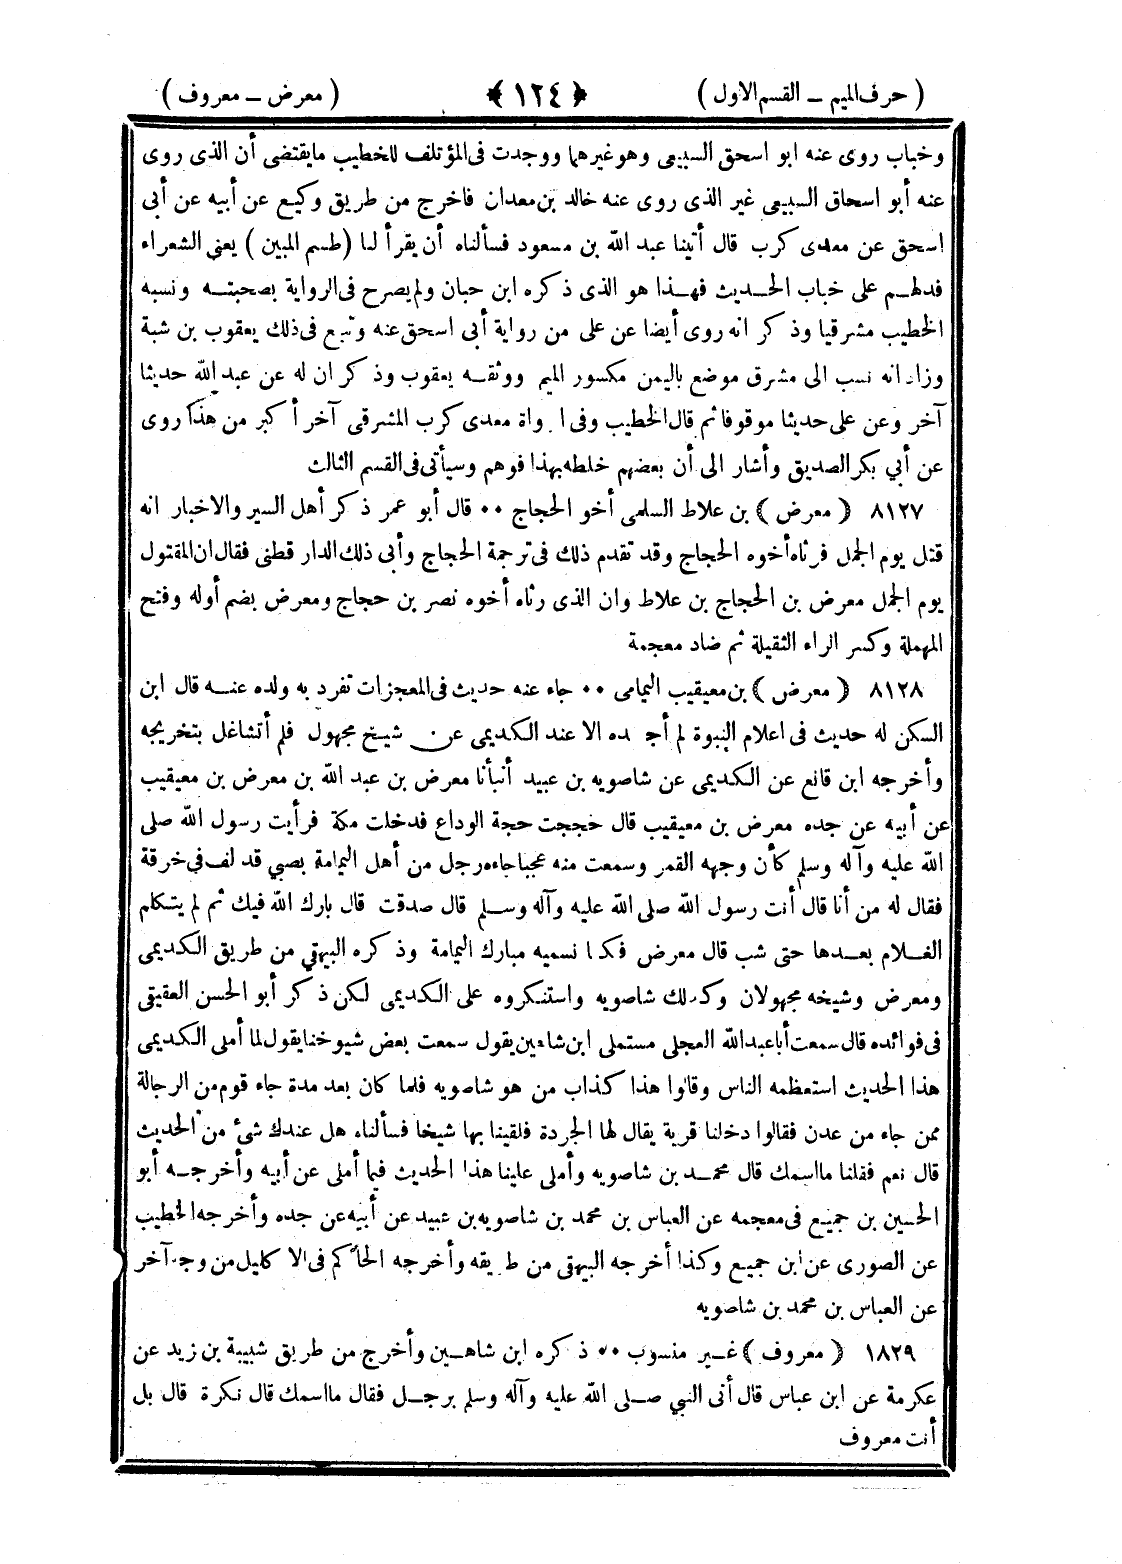 ( حرف الميم ــ القسم الاول ) ﴿ ١٢٤ ﴾ ( معرض ــ معروف )
وخباب روى عنه ابو اسحق السبيعى وهو غيرهما ووجدت فى المؤتلف للخطيب ما يقتضى أن الذى روى
عنه أبو اسحاق السبيعى غير الذى روى عنه خالد بن معدان فاخرج من طريق وكيع عن أبيه عن أبى
اسحق عن معدى كرب قال أتينا عبد الله بن مسعود فسألناه أن يقرأ لنا (طسم المبين) يعنى الشعراء
فدلهم على خباب الحديث فهذا هو الذى ذكره ابن حبان ولم يصرح فى الرواية بصحبته ونسبه
الخطيب مشرقيا وذكر انه روى أيضا عن على من رواية أبى اسحق عنه وتبع فى ذلك يعقوب بن شبة
وزاد انه نسب الى مشرق موضع باليمن مكسور الميم ووثقه يعقوب وذكر ان له عن عبد الله حديثا
آخر وعن على حديثا موقوفا ثم قال الخطيب وفى الرواة معدى كرب المشرقى آخر أكبر من هذا روى
عن أبي بكر الصديق وأشار الى أن بعضهم خلطه بهذا فوهم وسيأتى فى القسم الثالث
٨١٢٧ ( معرض ) بن علاط السلمى أخو الحجاج ٠٠ قال أبو عمر ذكر أهل السير والاخبار انه
قتل يوم الجمل فرثاه أخوه الحجاج وقد تقدم ذلك فى ترجمة الحجاج وأبى ذلك الدار قطنى فقال ان المقتول
يوم الجمل معرض بن الحجاج بن علاط وان الذى رثاه أخوه نصر بن حجاج ومعرض بضم أوله وفتح
المهملة وكسر الراء الثقيلة ثم ضاد معجمة
٨١٢٨ ( معرض ) بن معيقيب اليمامى ٠٠ جاء عنه حديث فى المعجزات تفرد به ولده عنه قال ابن
السكن له حديث فى اعلام النبوة لم أجده الا عند الكديمى عن شيخ مجهول فلم أتشاغل بتخريجه
وأخرجه ابن قانع عن الكديمى عن شاصويه بن عبيد أنبأنا معرض بن عبد الله بن معرض بن معيقيب
عن أبيه عن جده معرض بن معيقيب قال حججت حجة الوداع فدخلت مكة فرأيت رسول الله صلى
الله عليه وآله وسلم كأن وجهه القمر وسمعت منه عجبا جاءه رجل من أهل اليمامة بصبي قد لف فى خرقة
فقال له من أنا قال أنت رسول الله صلى الله عليه وآله وسلم قال صدقت قال بارك الله فيك ثم لم يتكلم
الغلام بعدها حتى شب قال معرض فكنا نسميه مبارك اليمامة وذكره البيهقي من طريق الكديمى
ومعرض وشيخه مجهولان وكذلك شاصويه واستنكروه على الكديمى لكن ذكر أبو الحسن العقيقى
فى فوائده قال سمعت أبا عبد الله العجلى مستملى ابن شاهين يقول سمعت بعض شيوخنا يقول لما أملى الكديمى
هذا الحديث استعظمه الناس وقالوا هذا كذاب من هو شاصويه فلما كان بعد مدة جاء قوم من الرجالة
ممن جاء من عدن فقالوا دخلنا قرية يقال لها الجردة فلقينا بها شيخا فسألناه هل عندك شئ من الحديث
قال نعم فقلنا ما اسمك قال محمد بن شاصويه وأملى علينا هذا الحديث فيما أملى عن أبيه وأخرجه أبو
الحسين بن جميع فى معجمه عن العباس بن محمد بن شاصويه بن عبيد عن أبيه عن جده وأخرجه الخطيب
عن الصورى عن ابن جميع وكذا أخرجه البيهقى من طريقه وأخرجه الحاكم فى الاكليل من وجه آخر
عن العباس بن محمد بن شاصويه
١٨٢٩ ( معروف ) غير منسوب ٠٠ ذكره ابن شاهين وأخرج من طريق شبيبة بن زيد عن
عكرمة عن ابن عباس قال أتى النبي صلى الله عليه وآله وسلم برجل فقال ما اسمك قال نكرة قال بل
أنت معروف